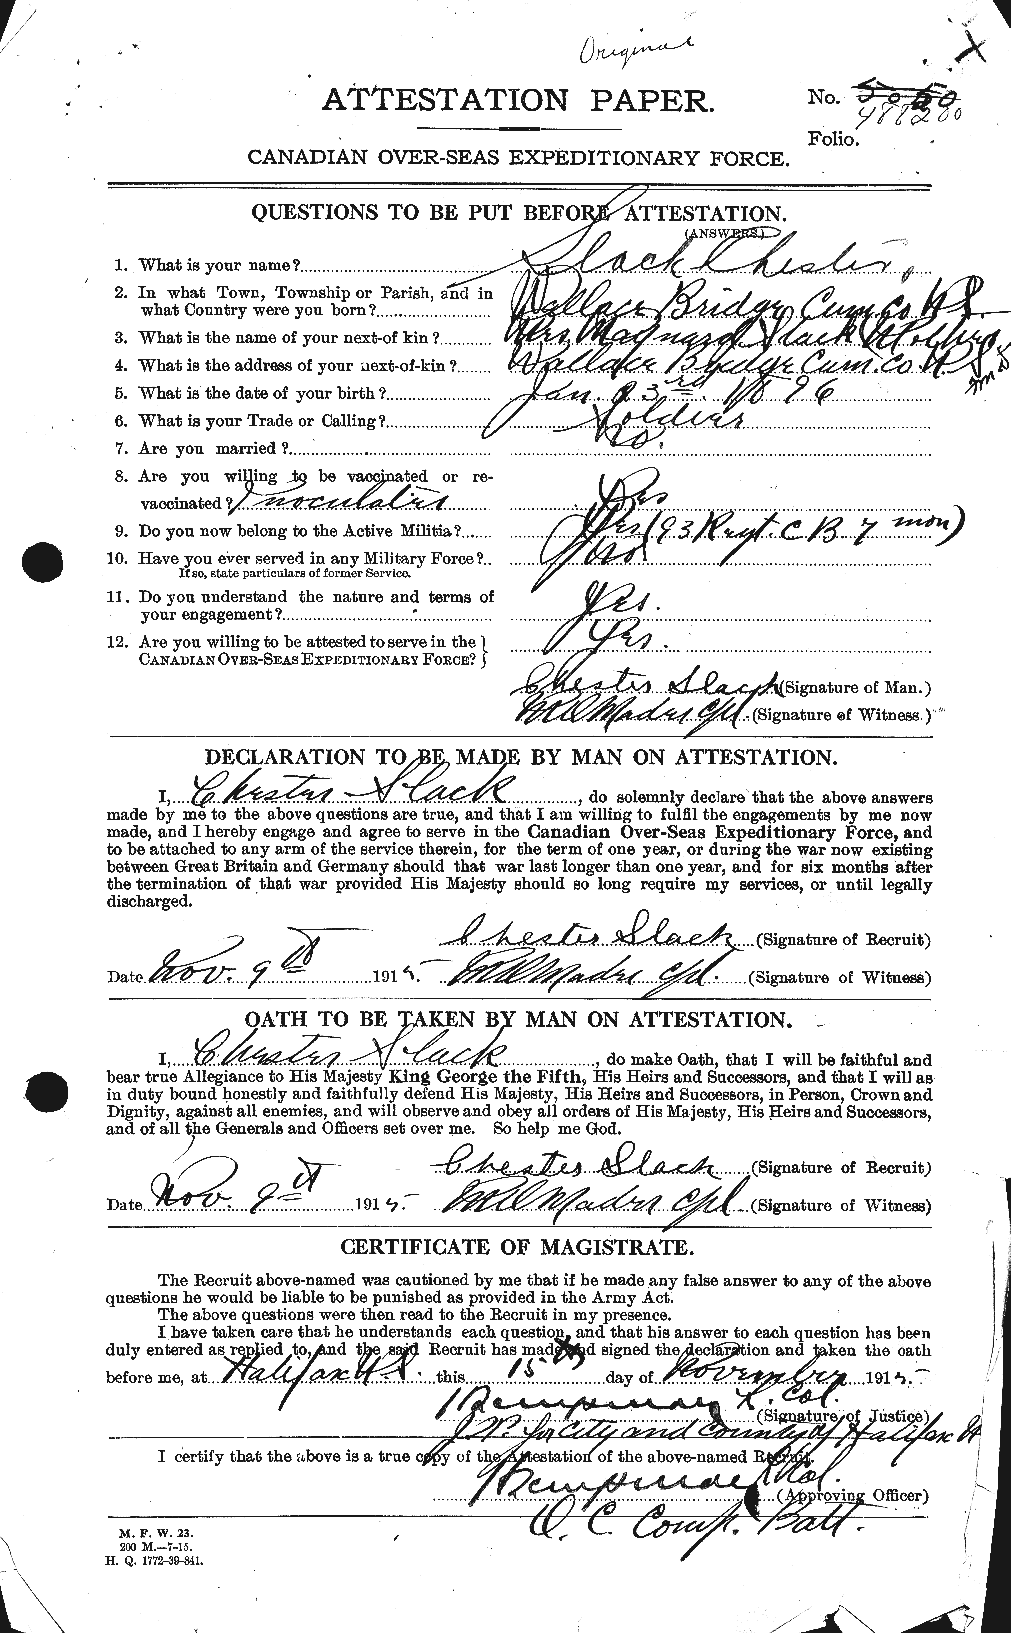 Original
ATTESTATION PAPER.
No. 5050
488280
Folio.
CANADIAN OVER-SEAS EXPEDITIONARY FORCE.
QUESTIONS TO BE PUT BEFORE ATTESTATION.
(ANSWERS)
1. What is your name? Slack Chester,
2. In what Town, Township or Parish, and in
what Country were you born? Wallace Bridge Cum. co N S.
3. What is the name of your next-of kin? Mrs Maynard Slack Mother
4. What is the address of your next-of-kin? Wallace Bridge Cum. co N S
5. What is the date of your birth? Jan. 23rd. 1896
6. What is your Trade or Calling? Soldier
7. Are you married? No.
8. Are you willing to be vaccinated or re-
vaccinated? Inoculated Yes
9. Do you now belong to the Active Militia? Yes (93 Regt. C B 7 mon)
10. Have you ever served in any Military Force? No
If so, state particulars of former Service.
11. Do you understand the nature and terms of
your engagement? Yes.
12. Are you willing to be attested to serve in the
CANADIAN OVER-SEAS EXPEDITIONARY FORCE? Yes.
Chester Slack (Signature of Man.)
Mader Cpl. (Signature of Witness.)
DECLARATION TO BE MADE BY MAN ON ATTESTATION.
I, Chester Slack, do solemnly declare that the above answers
made by me to the above questions are true, and that I am willing to fulfil the engagements by me now
made, and I hereby engage and agree to serve in the Canadian Over-Seas Expeditionary Force, and
to be attached to any arm of the service therein, for the term of one year, or during the war now existing
between Great Britain and Germany should that war last longer than one year, and for six months after
the termination of that war provided His Majesty should so long require my services, or until legally
discharged.
Chester Slack (Signature of Recruit)
Date Nov. 9th 1915. Mader Cpl. (Signature of Witness)
OATH TO BE TAKEN BY MAN ON ATTESTATION.
I, Chester Slack, do make Oath, that I will be faithful and
bear true Allegiance to His Majesty King George the Fifth, His Heirs and Successors, and that I will as
in duty bound honestly and faithfully defend His Majesty, His Heirs and Successors, in Person, Crown and
Dignity, against all enemies, and will observe and obey all orders of His Majesty, His Heirs and Successors,
and of all the Generals and Officers set over me. So help me God.
Chester Slack (Signature of Recruit)
Date Nov. 9th 1915. Mader Cpl (Signature of Witness)
CERTIFICATE OF MAGISTRATE.
The Recruit above-named was cautioned by me that if he made any false answer to any of the above
questions he would be liable to be punished as provided in the Army Act.
The above questions were then read to the Recruit in my presence.
I have taken care that he understands each question, and that his answer to each question has been
duly entered as replied to, and the said Recruit has made and signed the declaration and taken the oath
before me, at Halifax N S. this 15th day of November 1915.
Lt. Col. (Signature of Justice)
J. P. for City and County of Halifax N S
I certify that the above is a true copy of the Attestation of the above-named Recruit.
Lt Col. (Approving Officer)
O. C. Comp. Batt.
M. F. W. 23.
200 M.—7-15.
H. Q. 1772-39-841.